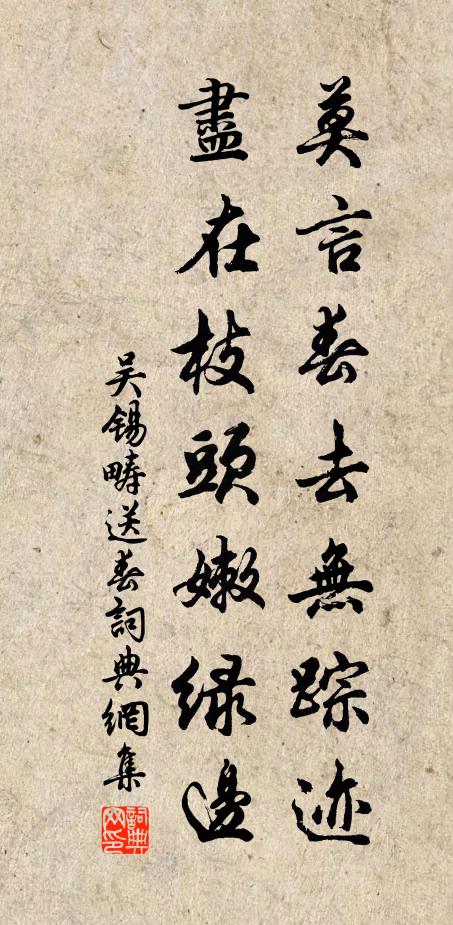 莫言春去無踪迹
盡在枝頭嫩綠邊
吴錫疇送春詞典網集
詞典網印